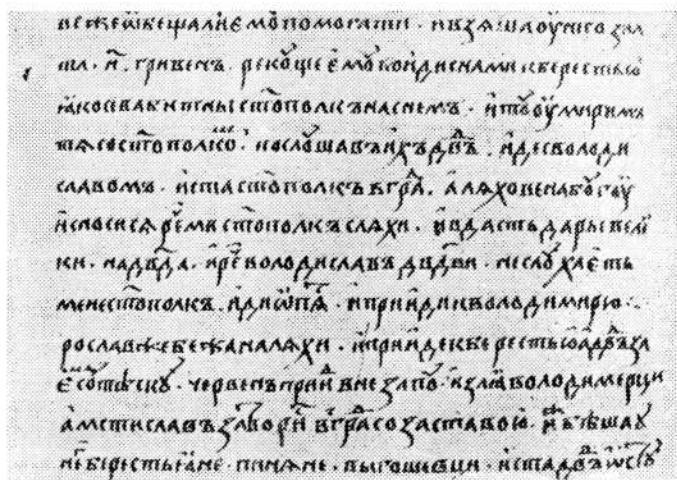 ве же ѡбещалисѧ емоу помогати · и взѧша оу него зла
та · н҃ · гривенъ · рекоуще ємоу поиди с нами к берестью
ꙗко се вабитъ ны ст҃ополкъ на снемъ · и тоу оумиримъ
тѧ со ст҃ополкоⷨ · послоушавъ ихъ дв҃дъ · иде с володи
славомъ · и ста ст҃ополкъ в граⷣ · а лѧхове на боугоу
и сносисѧ реⷱми ст҃ополкъ с лѧхи · и вдасть дары вели
ки · на дв҃да · и реⷱ володиславъ дв҃дви · не слоухаєть
мене ст҃ополкъ · иди ѡпѧⷮ · и прииде к володимирю ·
рославъ же бежа на лѧхи · и прииде к берестью а дв҃дъ за
червенъ приⷣ внезапоу · и володимерци
а мстиславъ затвориⷭ в граⷣ со заставою · беша оу
него берестьꙗне · пинѧне · выгошевци · и ста дв҃дъ